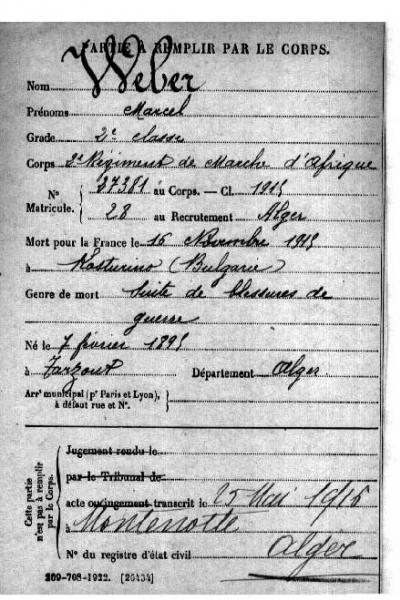 PARTIE À REMPLIR PAR LE CORPS.
Nom Weber
Prénoms Marcel
Grade 2e classe
Corps 2e Régiment de Marche d'Afrique
No Matricule. { 27381 au Corps. — Cl. 1915
28 au Recrutement Alger
Mort pour la France le 16 Novembre 1915
à Kosturino (Bulgarie)
Genre de mort Suite de blessures de
guerre
Né le 7 février 1895
à Tarzout Département Alger
Arrt municipal (pr Paris et Lyon),
à défaut rue et No.
Cette partie
n'est pas à remplir
par le Corps.
Jugement rendu le
par le Tribunal de
acte ou jugement transcrit le 25 Mai 1916
à Montenotte
Alger
No du registre d'état civil
209-708-1922. [26434]